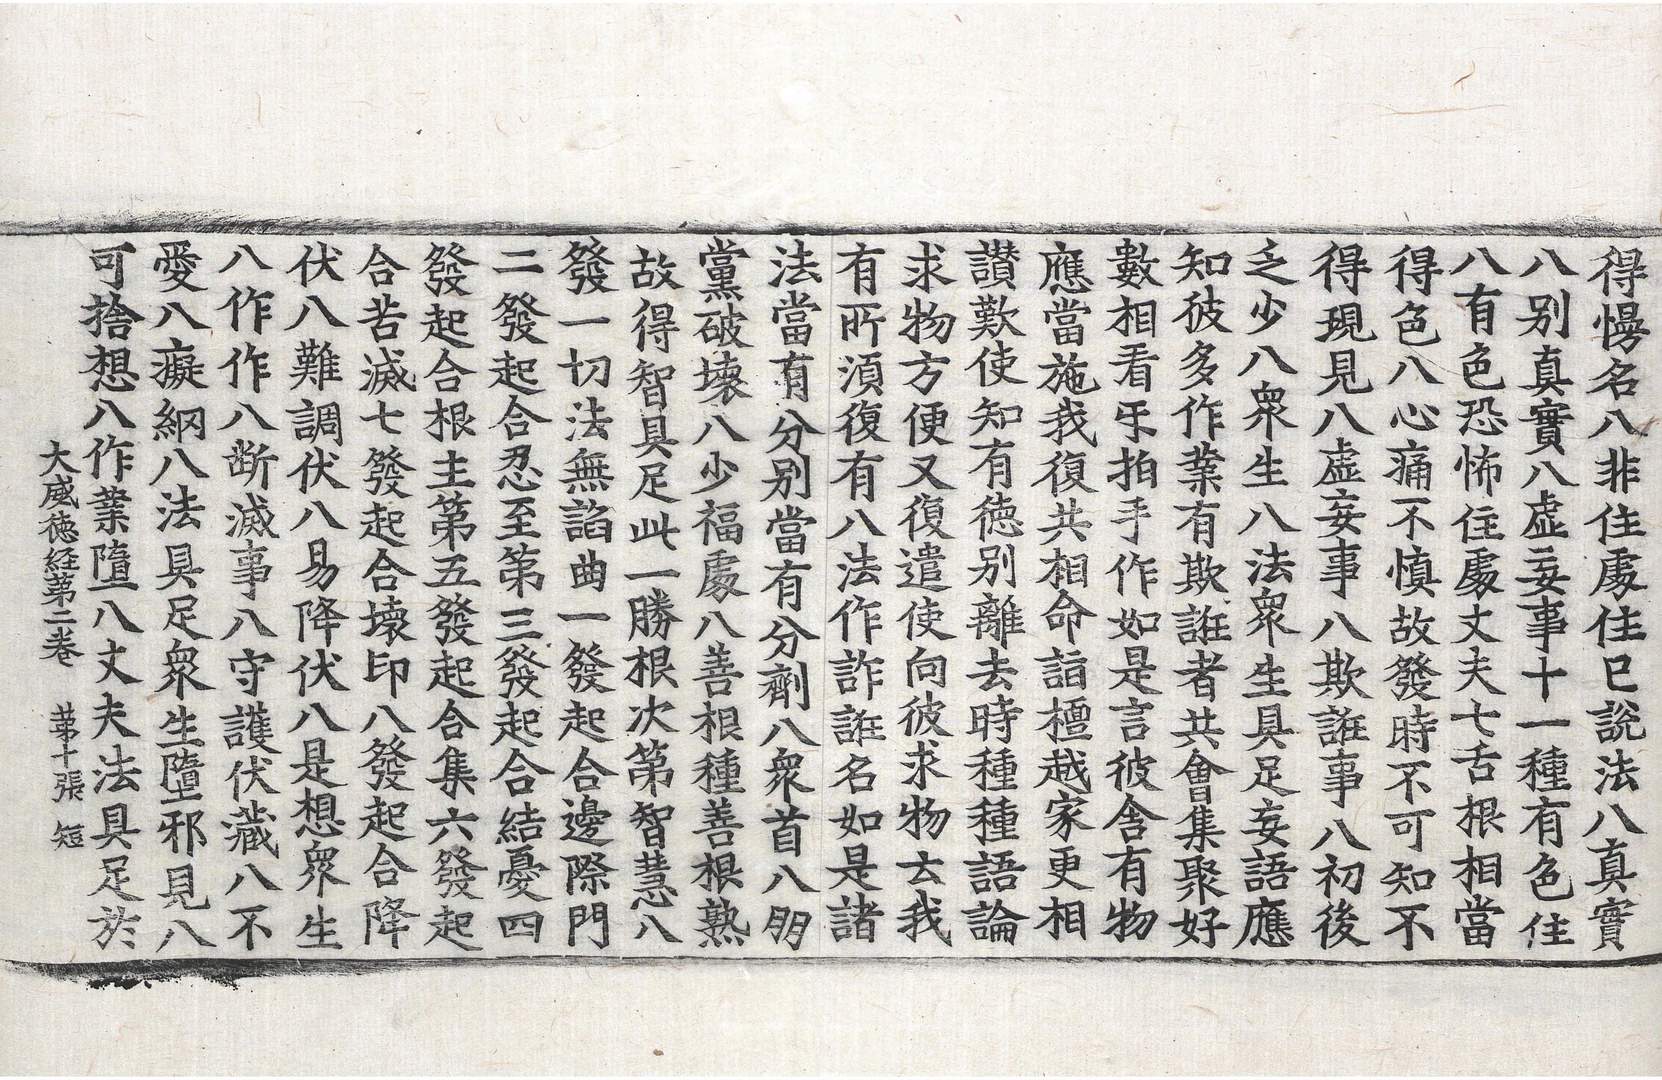 得慢名八非住處住已說法八真實
八别真實八虛妄事十一種有色住
八有色恐怖住處丈夫七舌根相當
得色八心痛不慎故發時不可知不
得現見八虛妄事八欺誑事八初後
乏少八衆生八法衆生具足妄語應
知彼多作業有欺誑者共會集聚好
數相看㸦拍手作如是言彼舍有物
應當施我復共相命詣檀越家更相
讃歎使知有德别離去時種種語論
求物方便又復遣使向彼求物去我
有所須復有八法作詐誑名如是諸
法當有分别當有分劑八衆首八朋
黨破壞八少福處八善根種善根熟
故得智具足此一勝根次第智慧八
發一切法無諂曲一發起合邊際門
二發起合忍至第三發起合結憂四
發起合根主第五發起合集六發起
合苦滅七發起合壞印八發起合降
伏八難調伏八易降伏八是想衆生
八作作八断滅事八守護伏藏八不
愛八癡網八法具足衆生墮邪見八
可捨想八作業墮八丈夫法具足於
大威德経苐二卷 苐十張 短